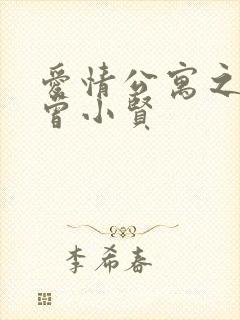 愛情公寓之
曾小賢
李希春